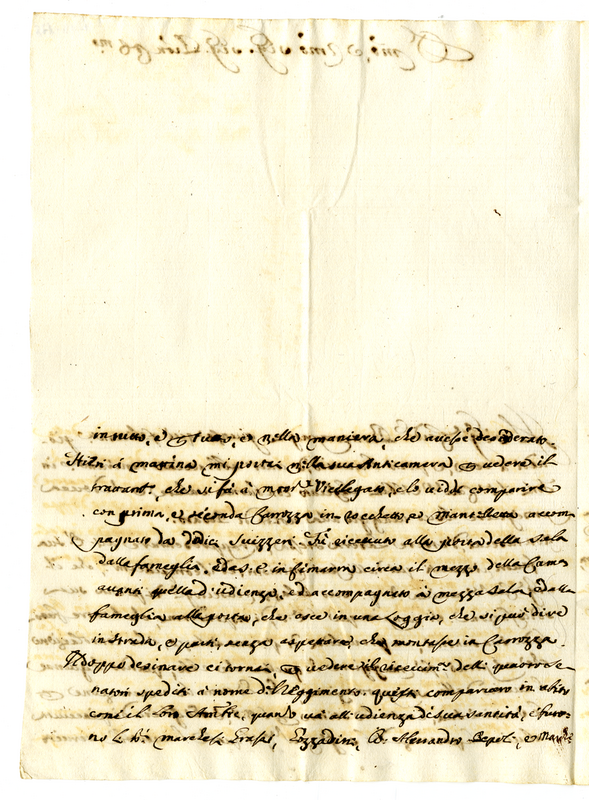 in tutto, e p tutto, e nella maniera, che avesse desiderato.
Hieri à mattina mi portai nella sua Anticamera p vedere il
trattamt.º, che si fà à monsr Vicelegato, e lo viddi comparire
con prima, e seconda Carozza in rocchetto, e mantelletta accom
pagnato da dodici Suizzeri. Fù ricevuto alla porta della Sala
dalla fameglia, e in circa il mezzo della Came
avanti quella d'udienza, ed accompagnato à mezza sala, e dalla
fameglia alla porta, che esce in una Loggia, che si può dire
in strada, e partì, senza aspettare, che montasse in Carrozza.
Il doppo desinare ci tornai p vedere il ricevimto delli quattro Se
natori spediti à nome del Reggimento, questi comparvero in
come il loro, quando và all'udienza di sua santità, e furo
no li SSri marchese Grassi, Cozzadini, Co. Alessandro Pepoli, e March